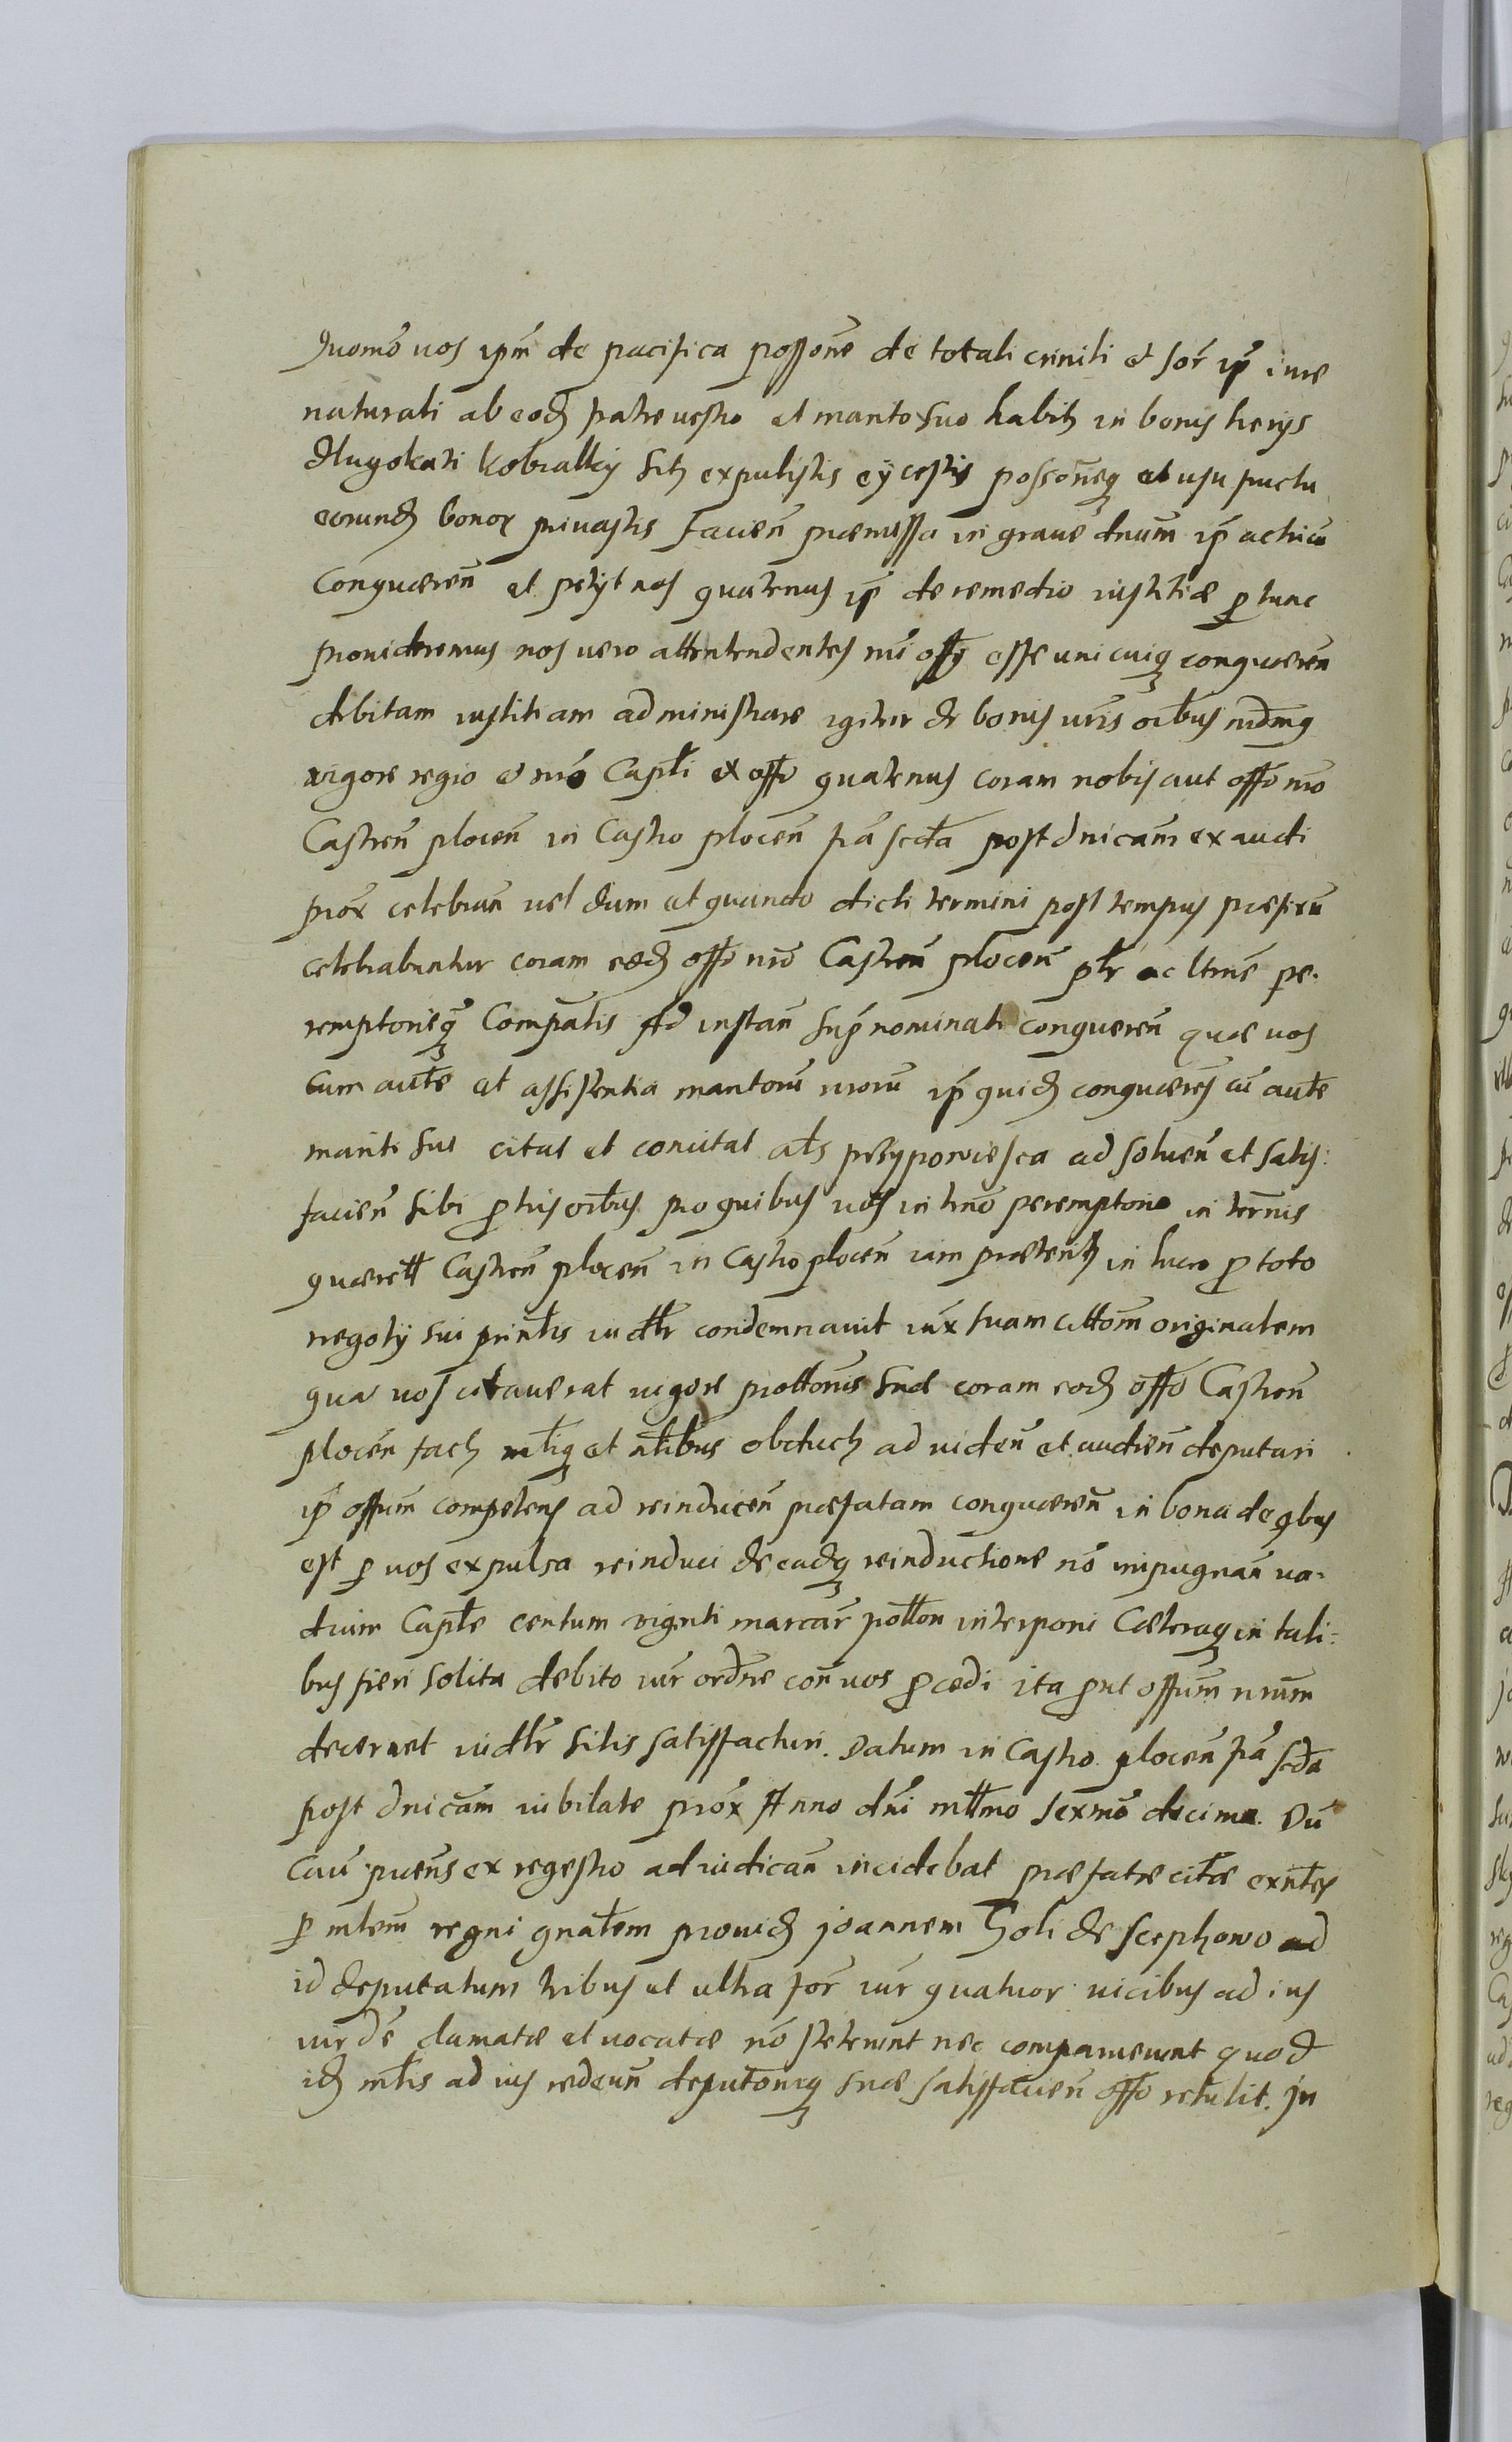 Quomō vos ipm̄ de pacifica possone de totali crinili et sor̄ ip̄ iure
naturali ab eod patre vestro et marito suo habitꝫ in bonis terrijs
Dlugokati Kobialky sitꝫ expulistis eijcestis possoneqꝫ et usu fructu
eorund bonoꝝ privastis facien̄ præmissa in grave dnum̄ ip̄ actricis
conquæren̄ et petijt nos quatenus ip̄ de remedio iustitiæ ꝑ tunc
provideremus nos vero attentendentes nri offij esse unicuiqꝫ conquæren̄
debitam iustitiam administrare igitur de bonis vris oibus mdmꝰ
vigore regio et nrō Capłi ex offo quatenus coram nobis aut offo nrō
Castren̄ plocen̄ in Castro plocen̄ fr̄a scda post dnicam̄ exaudi
prox̄ celebran̄ vel dum et quando dicti termini post tempus præfixū
celebrabuntur coram eod offo nrō Castren̄ plocen̄ ꝑłr ac ltime pe-
remptorieqꝫ Comp̄atis Ad instan̄ sup̄nominati conqueren̄ quæ vos
cum auťe et assistentia maritorū vrorū ip̄ quid conquæren̄s cū auťe
mariti sui citat et conuitat ałs przyporviesca ad solven̄ et satis:
facien̄ sibi ꝑ his oibus pro quibus vos in tmo peremptorio in termis
quærełł Castren̄ plocen̄ in Castro plocen̄ iam præteritꝫ in lucro ꝑ toto
negotij sui prinłis iudłr condemnavit iux̄ suam citťom̄ originalem
qua vos citaverat vigore protťonis suæ coram eod offo Castren̄
plocen̄ factꝫ młisqꝫ et nłibus obductꝫ ad viden̄ et audien̄ deputari
ip̄ offum̄ competens ad reinducen̄ præfatam conquæren̄ in bona de qbus
est ꝑ vos expulsa reinduci de eadqꝫ reinductione nō impugnan̄ va-
dium Capłe centum viginti marcar̄ połłon interponi Cæteraqꝫ in tali:
bus fieri solita debito iur̄ ordne con̄ vos ꝑcedi ita ꝓut offum̄ nrum̄
decernet iudłr sitis satisfacturi. Datum in Castro plocen̄ fr̄a scda
post dnicam̄ iubilate prox̄ Anno dn̄i młłmo sexmo decimo. Dū
cau p̄ens ex regestro ad iudican̄ incidebat præfatæ citæ exnťes
ꝑ mlem̄ regni gnałem provid Joannem Goli de Scephowo ad
id deputatum tribus et ultra for̄ iur̄ quatuor vicibus ad ius
iur̄ dē clamatæ et vocatæ nō steterunt nec comparuerunt quod
id młis ad ius redeun̄ deputonisqꝫ suæ satisfacien̄ offo retulit. In